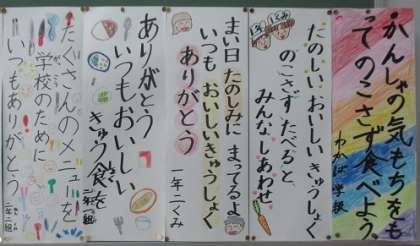 かんしゃの気もちをも
ってのこさず食べよう。
わかば学級
1年1くみ
たのしい おいしい きゅうしょく
のこさず たべると
みんな しあわせ
まい日 たのしみに まってるよ
いつも おいしいきゅうしょく
ありがとう
一年二くみ
ありがとう
いつもおいしい
きゅう食を
二年一組
たくさんのメニューを
学校のために
いつもありがとう
二年二組